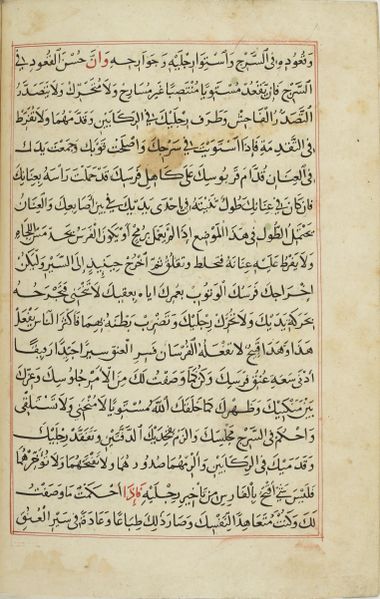 وقعوده في السرج واستوا رجليه وجوارحه وان حسن القعود في
السرج فان تقعد مستويا منتصبا غير مسارح ولا متحرك ولا تتصدر
التصدر الفاحش وطرف رجليك في الركابين وقدمهما ولا تفرط
في التقدمة فاذا استويت في سرجك واصلحت ثوبك وجمعت يدك
في العنان قدام قربوسك على كاهل فرسك قد حملت راسه بعنانك
فان كان في عنانك طول ثنيته في احدى يديك في بين اصابعك والعنان
يحتمل الطول في هذا الموضع اذا لم يعمل برمح او يكون الفرس يجد مس اللجام
ولا يفرط عليه عنانه فتخلط وتعلق ثم اخرج حينئذ الى السير وليكن
اخراجك فرسك الوثوب بغمرك اياه بعقبك لا تنحني فتخرجه
بحركة يديك ولا تحرك رجليك وتضرب بطنه بهما فاكثر الناس يفعل
هذا وهذا قبيح لا تفعله الفرسان فسر العنق سيرا جيدا رفيقا
ادنى سعة عنق فرسك وكن كما وصفت لك من الامر جلوسك وعزك
بين منكبيك وظهرك كما خلقك الله مستويا لا منحني ولا تستلقي
واحكم في السرج مجلسك والزم فخذيك الدفتين وتفقد رجليك
وقدميك في الركابين والزمهما صدورهما ولا تفتحهما ولا تؤخرهما
فليس شي اقبح بالفارس من تاخير رجليه فاذا احكمت ما وصفت
لك وكنت متعاهدا لنفسك وصار ذلك طباعا وعادة في سير العنق